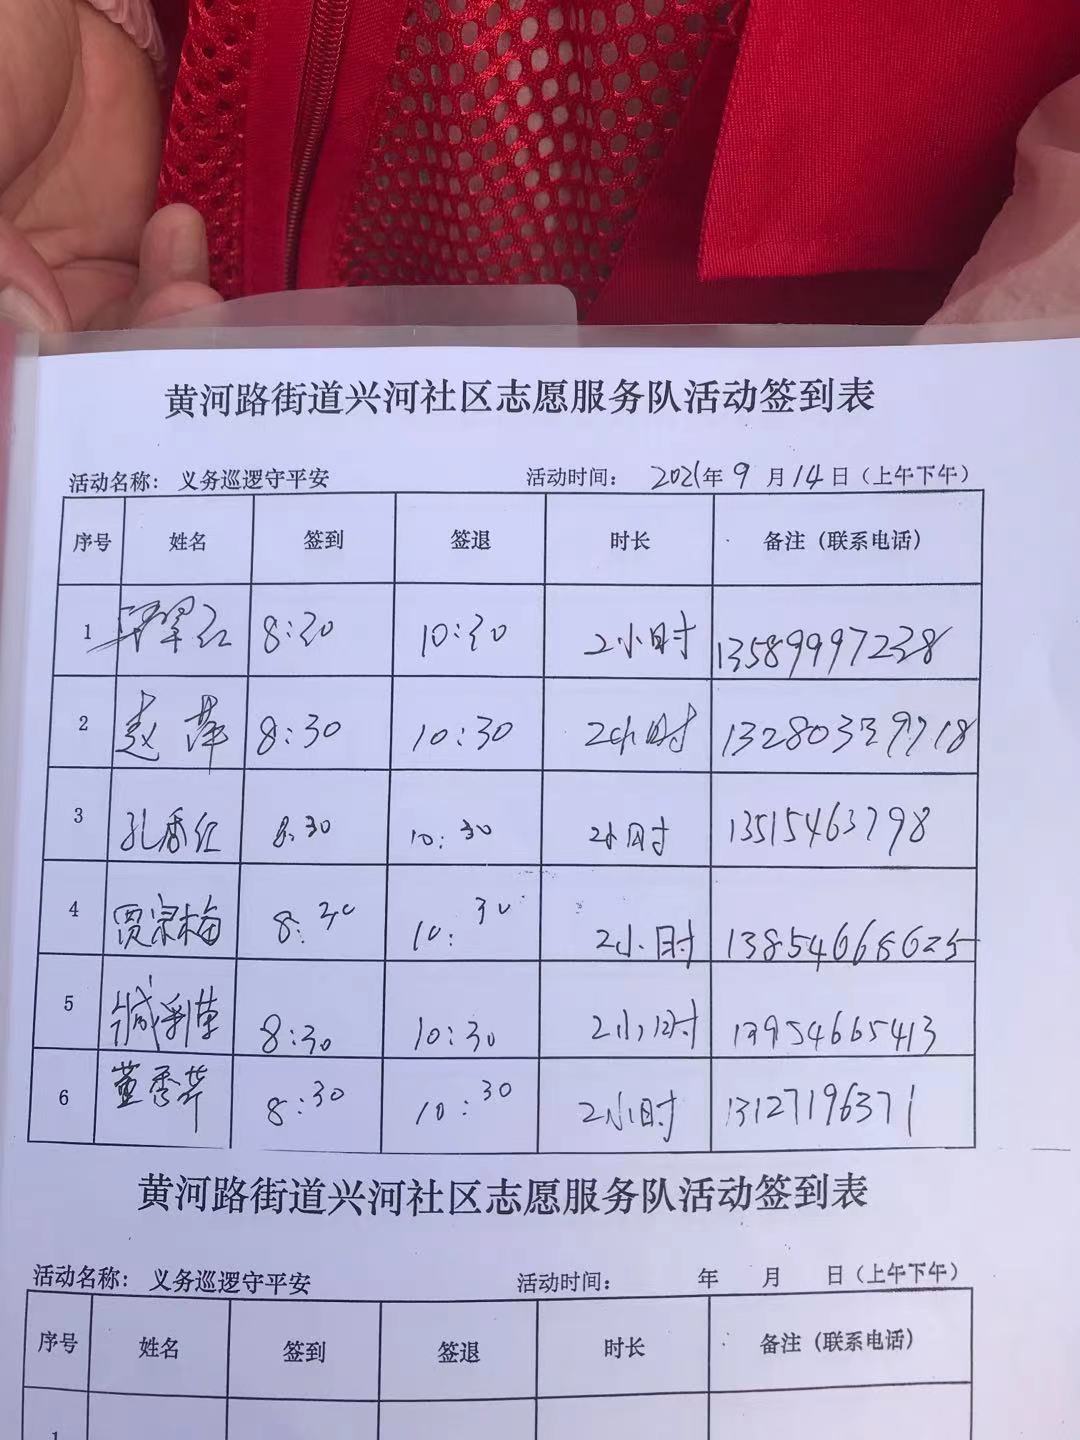 黄河路街道兴河社区志愿服务队活动签到表
活动名称： 义务巡逻守平安 活动时间： 2021年 9 月 14 日（上午下午）
序号 姓名 签到 签退 时长 备注（联系电话）
1 8:30 10:30 2小时 13589997238
2 赵萍 8:30 10:30 2小时 13280339718
3 孔香红 8:30 10:30 2小时 13515463798
4 贾宗梅 8:30 10:30 2小时 13854668625
5 8:30 10:30 2小时 13954665413
6 董秀芹 8:30 10:30 2小时 13127196371
黄河路街道兴河社区志愿服务队活动签到表
活动名称： 义务巡逻守平安 活动时间： 年 月 日（上午下午）
序号 姓名 签到 签退 时长 备注（联系电话）
1